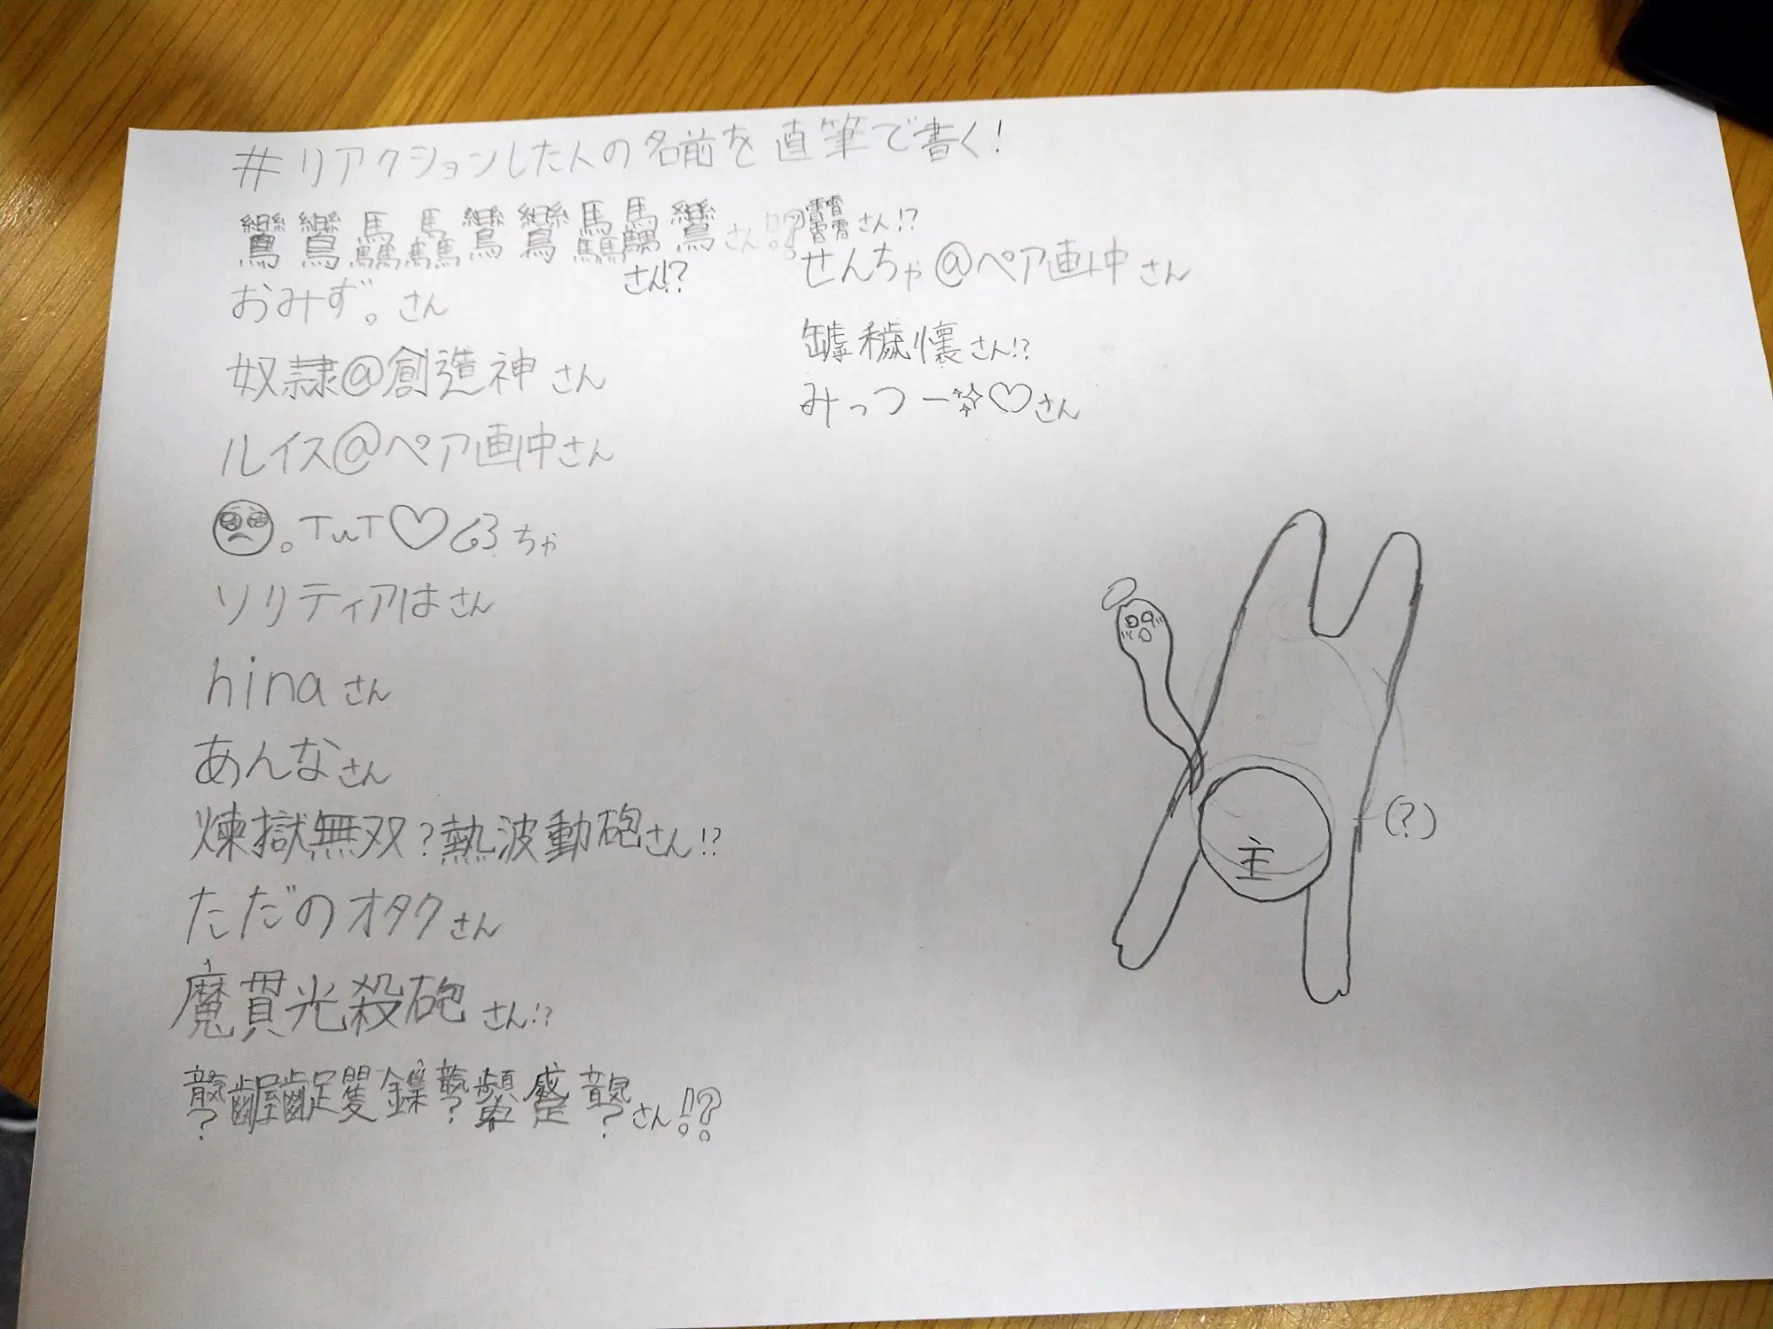 #リアクションした人の名前を直筆で書く!
鸞鸞驫驫鸞鸞驫驫鸞さん!?
さん!?
おみず。さん
奴隷@創造神さん
ルイス@ペア画中さん
。TuT♡ちゃ
ソリティアはさん
hinaさん
あんなさん
煉獄無双?熱波動砲さん!?
ただのオタクさん
魔貫光殺砲さん!?
さん!?
さん!?
せんちゃ@ペア画中さん
罅穢懐さん!?
みっつー✨♡さん
主
(?)